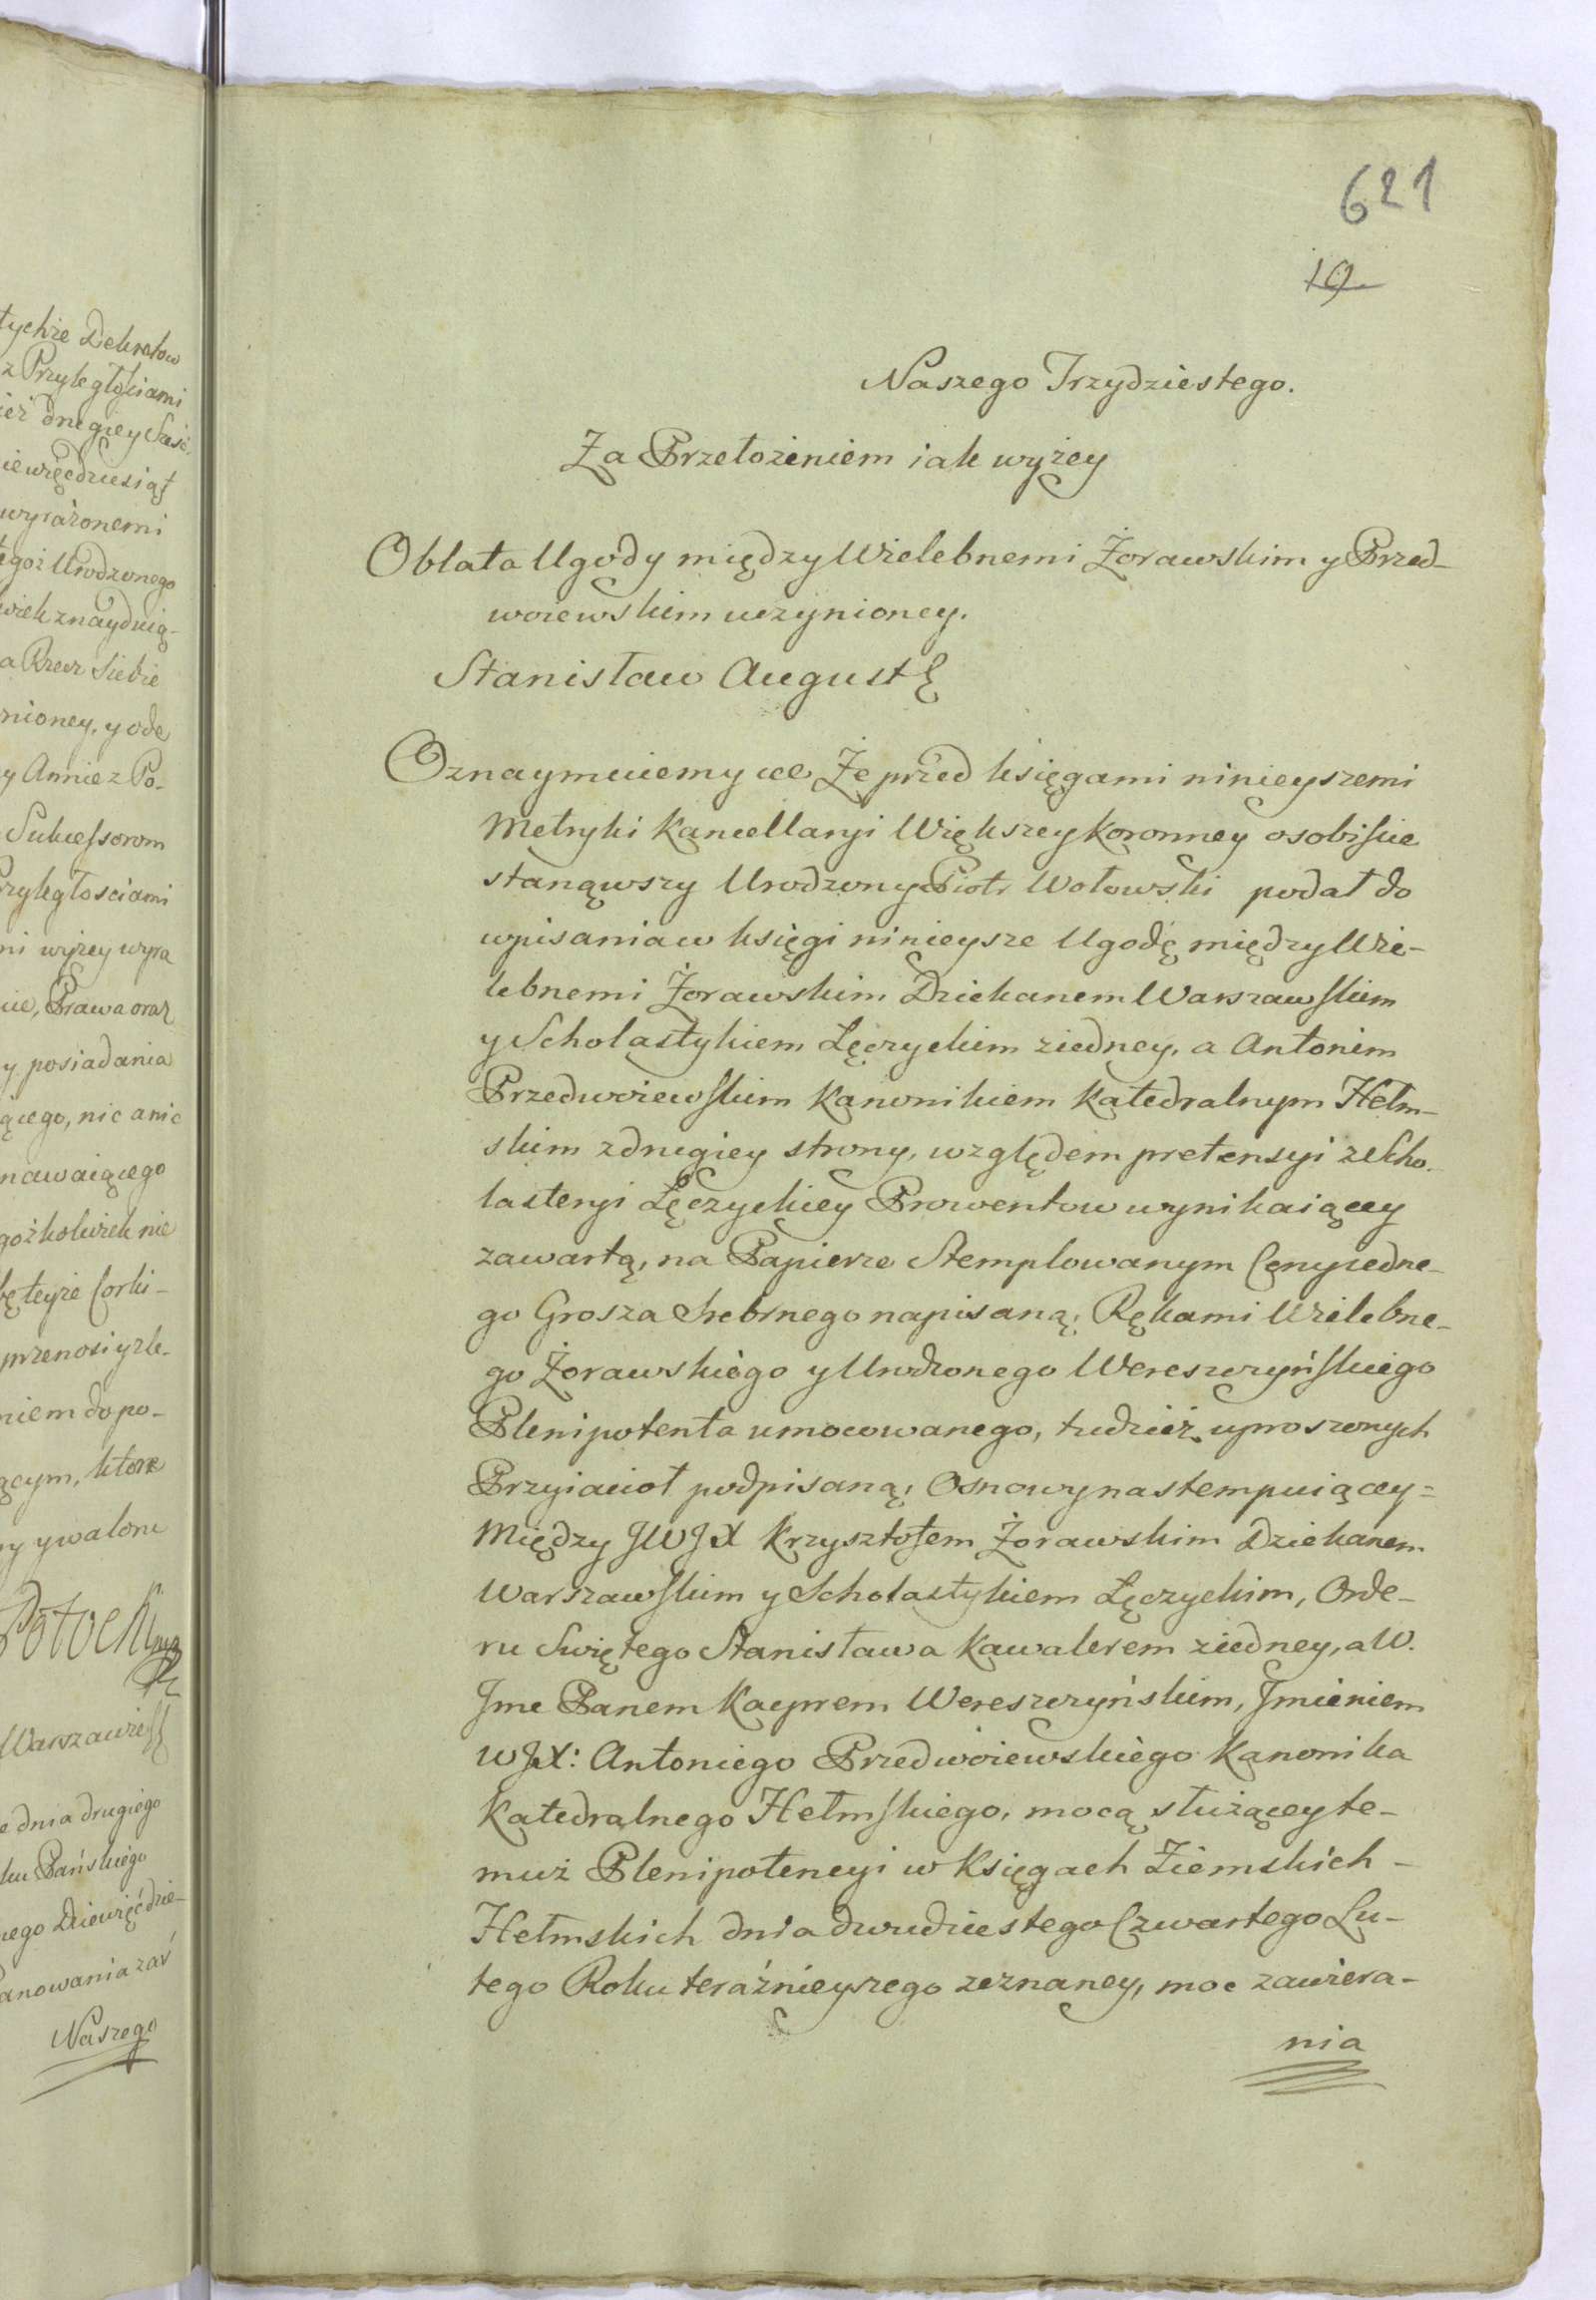 tychże Dekretow
z Przyległościami
drugiey
dziewięćdziesiąt
wyrażonemi
tegoż Urodzonego
wiek znayduią-
a Przez Siebie
nioney, y ode
y Annie z Po-
Sukcessorom
Przyległosciami
ni wyżey wyra
nie, Prawa oraz
y posiadania
ącego, nic a nic
nawaiącego
gożkolwiek nie
bę teyże Corki-
przenosi y zle-
niem do po-
ącym, ktore
ny y walone
Potocki
Warszawie
e dnia drugiego
ku Pańskiego
nego Dziewięćdzie-
anowania zaś
Naszego
621
19.
Naszego Trzydziestego.
Za Przełożeniem iak wyżey
Oblata Ugody między Wielebnemi Żorawskim y Przed-
woiewskim uczynioney.
Stanisław August
Oznaymuiemy ccc Że przed księgami ninieyszemi
Metryki Kancellaryi Większey Koronney osobiście
stanąwszy Urodzony Piotr Wołowski podał do
wpisania w księgi ninieysze Ugodę między Wie-
lebnemi Żorawskim Dziekanem Warszawskim
y Scholastykiem Łęczyckim ziedney, a Antonim
Przedwoiewskim Kanonikiem Katedralnym Hełm-
skim zdrugiey strony, względem pretensyi ze Scho-
lasteryi Łęczyckiey Prowentow wynikaiącey
zawartą, na Papierze Stemplowanym Ceny iedne-
go Grosza Srebrnego napisaną; Rękami Wielebne-
go Żorawskiego y Urodzonego Wereszczyńskiego
Plenipotenta umocowanego, tudzież uproszonych
Przyiacioł podpisaną; Osnowy nastempuiącey=
Między JWJX Krzysztofem Żorawskim Dziekanem
Warszawskim y Scholastykiem Łęczyckim, Orde-
ru Swiętego Stanisława Kawalerem ziedney, a W.
Jmc Panem Kacprem Wereszczyńskim, Jmieniem
WJX: Antoniego Przedwoiewskiego Kanonika
Katedralnego Hełmskiego, mocą służącey te-
muż Plenipotencyi w Księgach Ziemskich-
Hełmskich dnia dwudziestego Czwartego Lu-
tego Roku teraźnieyszego zeznaney, moc zawiera-
nia